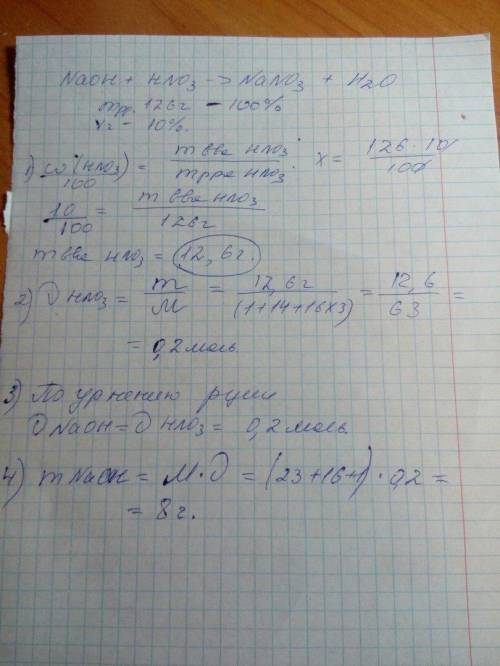 NaOH + HNO3 -> NaNO3 + H2O
mрр. 126г - 100%
xг - 10%.
1) ω(HNO3)/100 = m вва HNO3 / m рра HNO3. x = 126 · 10 / 100
10/100 = m вва HNO3 / 126г
m вва HNO3 = 12,6г.
2) ν HNO3 = m/M = 12,6г / (1+14+16x3) = 12,6/63 =
= 0,2 моль.
3) По ур-нению р-ции
ν NaOH = ν HNO3 = 0,2 моль.
4) m NaOH = M·ν = (23+16+1) · 0,2 =
= 8г.